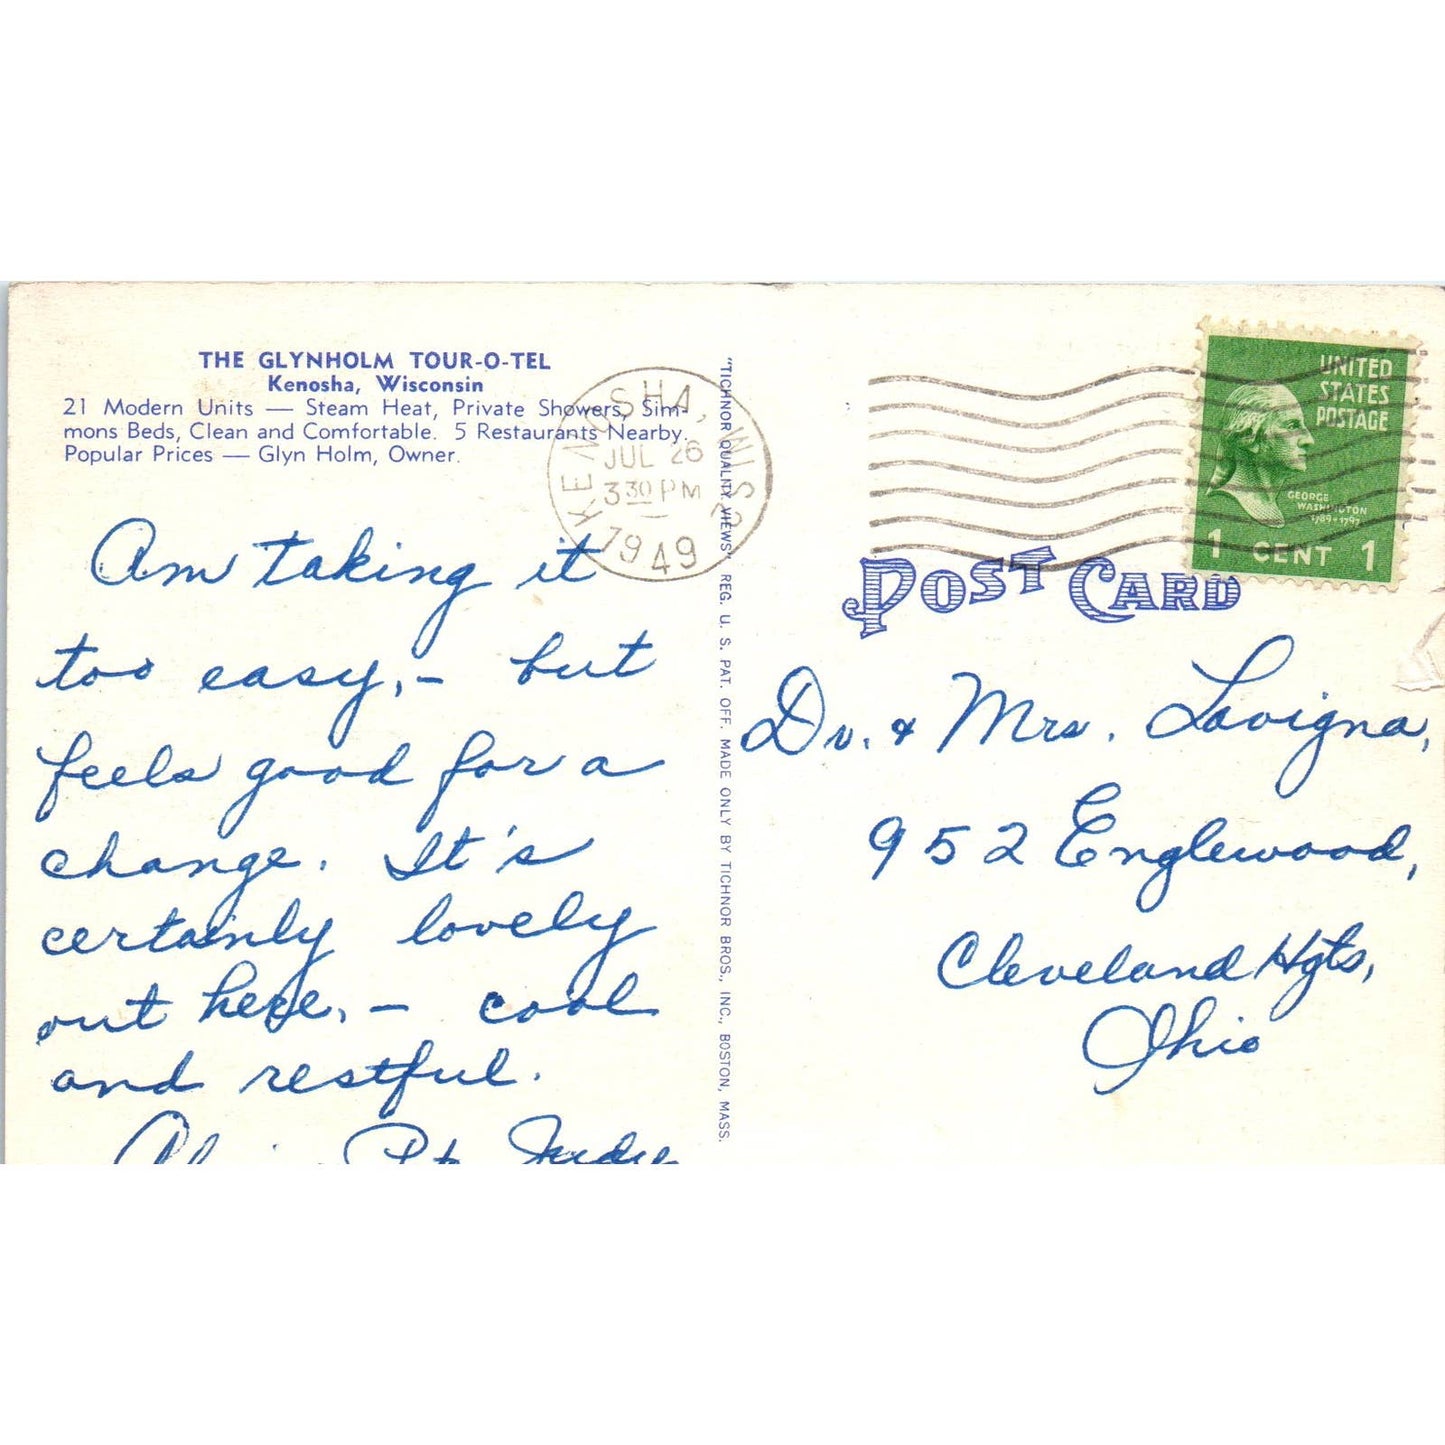 THE GLYNHOLM TOUR-O-TEL
Kenosha, Wisconsin
21 Modern Units — Steam Heat, Private Showers, Sim-
mons Beds, Clean and Comfortable. 5 Restaurants Nearby.
Popular Prices — Glyn Holm, Owner.
KENOSHA, WISC
JUL 26
3 30 PM
1949
Am taking it
too easy, — but
feels good for a
change. It's
certainly lovely
out here, — cool
and restful.
Judy
"TICHNOR QUALITY VIEWS" REG. U. S. PAT. OFF. MADE ONLY BY TICHNOR BROS., INC., BOSTON, MASS.
UNITED
STATES
POSTAGE
GEORGE
WASHINGTON
1789-1797
1 CENT 1
POST CARD
Dr. & Mrs. Lavigna,
952 Englewood,
Cleveland Hgts,
Ohio